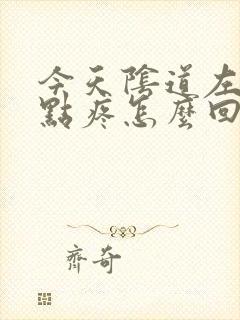 今天陰道左
點疼怎麼回
齊奇